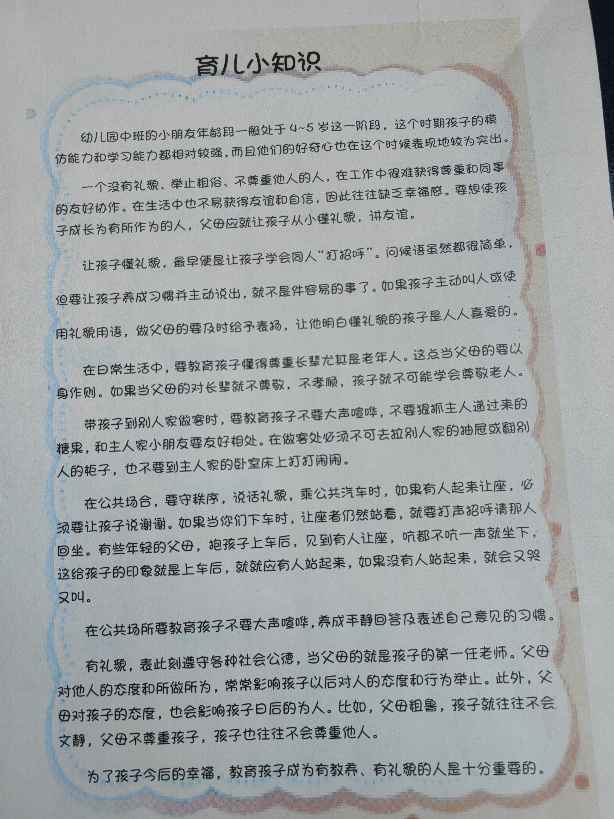 育儿小知识
幼儿园中班的小朋友年龄段一般处于4~5岁这一阶段，这个时期孩子的模
仿能力和学习能力都相对较强，而且他们的好奇心也在这个时候表现地较为突出。
一个没有礼貌、举止粗俗、不尊重他人的人，在工作中很难获得尊重和同事
的友好协作。在生活中也不易获得友谊和自信，因此往往缺乏幸福感。要想使孩
子成长为有所作为的人，父母应就让孩子从小懂礼貌，讲友谊。
让孩子懂礼貌，最早便是让孩子学会同人“打招呼”。问候语虽然都很简单，
但要让孩子养成习惯并主动说出，就不是件容易的事了。如果孩子主动叫人或使
用礼貌用语，做父母的要及时给予表扬，让他明白懂礼貌的孩子是人人喜爱的。
在日常生活中，要教育孩子懂得尊重长辈尤其是老年人。这点当父母的要以
身作则。如果当父母的对长辈就不尊敬，不孝顺，孩子就不可能学会尊敬老人。
带孩子到别人家做客时，要教育孩子不要大声喧哗，不要狠抓主人递过来的
糖果，和主人家小朋友要友好相处。在做客处必须不可去拉别人家的抽屉或翻别
人的柜子，也不要到主人家的卧室床上打打闹闹。
在公共场合，要守秩序，说话礼貌，乘公共汽车时，如果有人起来让座，必
须要让孩子说谢谢。如果当你们下车时，让座者仍然站着，就要打声招呼请那人
回坐。有些年轻的父母，抱孩子上车后，见到有人让座，吭都不吭一声就坐下，
这给孩子的印象就是上车后，就就应有人站起来，如果没有人站起来，就会又哭
又叫。
在公共场所要教育孩子不要大声喧哗，养成平静回答及表述自己意见的习惯。
有礼貌，表此刻遵守各种社会公德，当父母的就是孩子的第一任老师。父母
对他人的态度和所做所为，常常影响孩子以后对人的态度和行为举止。此外，父
母对孩子的态度，也会影响孩子日后的为人。比如，父母粗鲁，孩子就往往不会
文静，父母不尊重孩子，孩子也往往不会尊重他人。
为了孩子今后的幸福，教育孩子成为有教养、有礼貌的人是十分重要的。